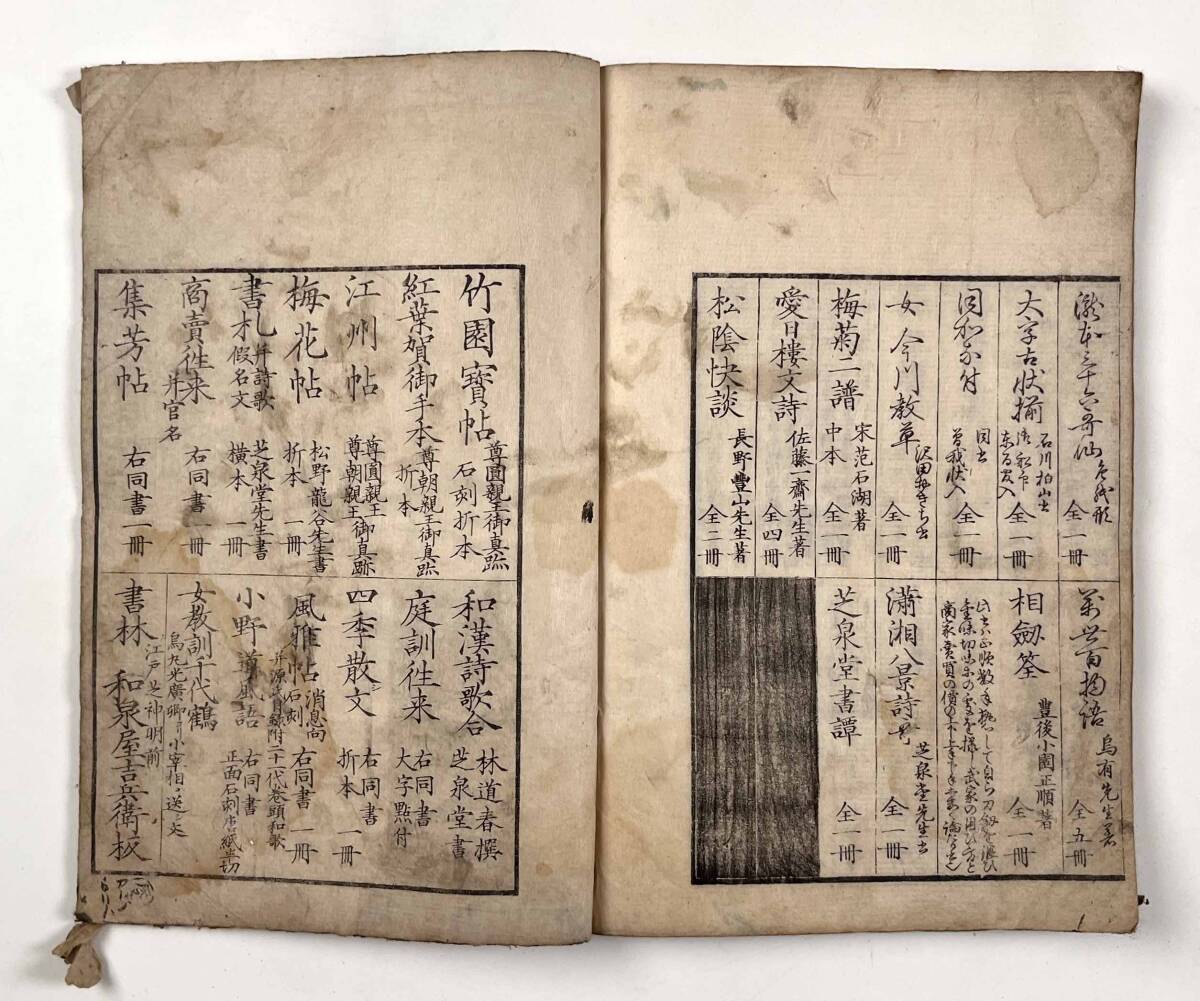 瀧本三十六哥仙
全一冊
大字古状揃
石川柏山書
全一冊
同
同書
曽我状入
全一冊
女今川教草
沢田
全一冊
梅菊二譜
宋范石湖著
中本
全一冊
愛日樓文詩
佐藤一齋先生著
全四冊
松陰快談
長野豐山先生著
全二冊
百物語
烏有先生著
全五冊
相劔筌
豐後小園正順著
全一冊
瀟湘八景詩
芝泉堂先生書
全一冊
芝泉堂書譚
全一冊
竹園寶帖
尊圓親王御真跡
石刻折本
紅葉賀御手本
尊朝親王御真跡
折本
江州帖
尊圓親王
尊朝親王御真跡
梅花帖
松野龍谷先生書
折本 一冊
書札并詩歌
假名文
芝泉堂先生書
横本 一冊
商賣徃来
并官名
右同書 一冊
集芳帖
右同書 一冊
和漢詩歌合
林道春撰
芝泉堂書
庭訓徃来
右同書
大字點付
四季散文
右同書
折本 一冊
風雅帖
消息尚
石刻
右同書 一冊
并源氏目録附二十一代巻頭和歌
小野道風語
右同書
正面石刻唐紙半切
女教訓千代鶴
烏丸光廣卿ヨリ小宰相ヘ送ル文
江戸芝神明前
書林 和泉屋吉兵衛板